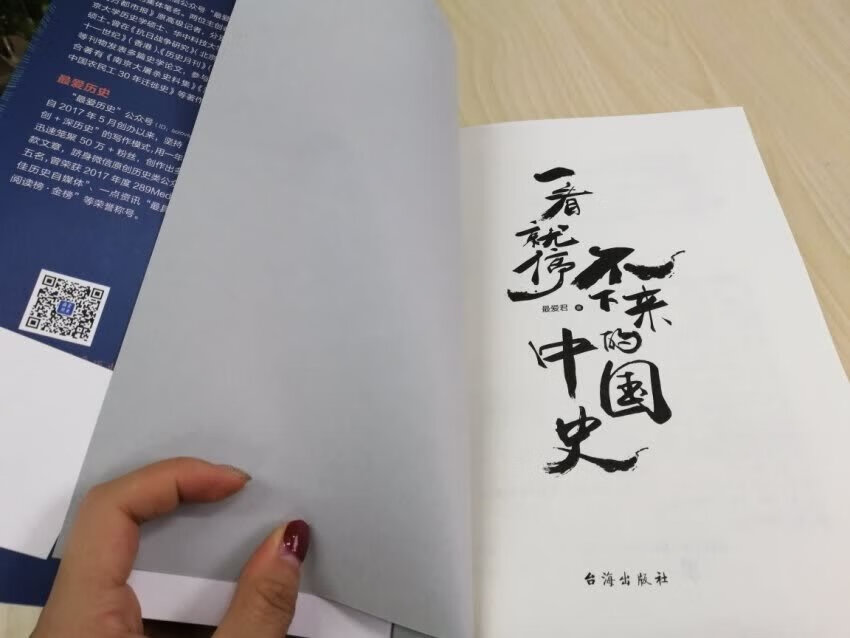 公众号“最爱
集体笔名。两位主创
方都市报》原高级记者,分
京大学历史学硕士、华中科技大
硕士,曾在《抗日战争研究》(北
十一世纪》(香港)、《历史月刊》(
等刊物发表多篇史学论文,参
合著有《南京大屠杀史料集》《
中国农民工30年迁徙史》等著作
最爱历史
“最爱历史”公众号(ID:
自2017年5月创办以来,坚持
创+深历史”的写作模式,用一年
迅速笼聚50万+粉丝,创作出
款文章,跻身微信原创历史类公众
五名,曾荣获2017年度289Med
佳历史自媒体”、一点资讯“最具
阅读榜·金榜”等荣誉称号。
一看就停
不下来的
中国史
最爱君 著
台海出版社